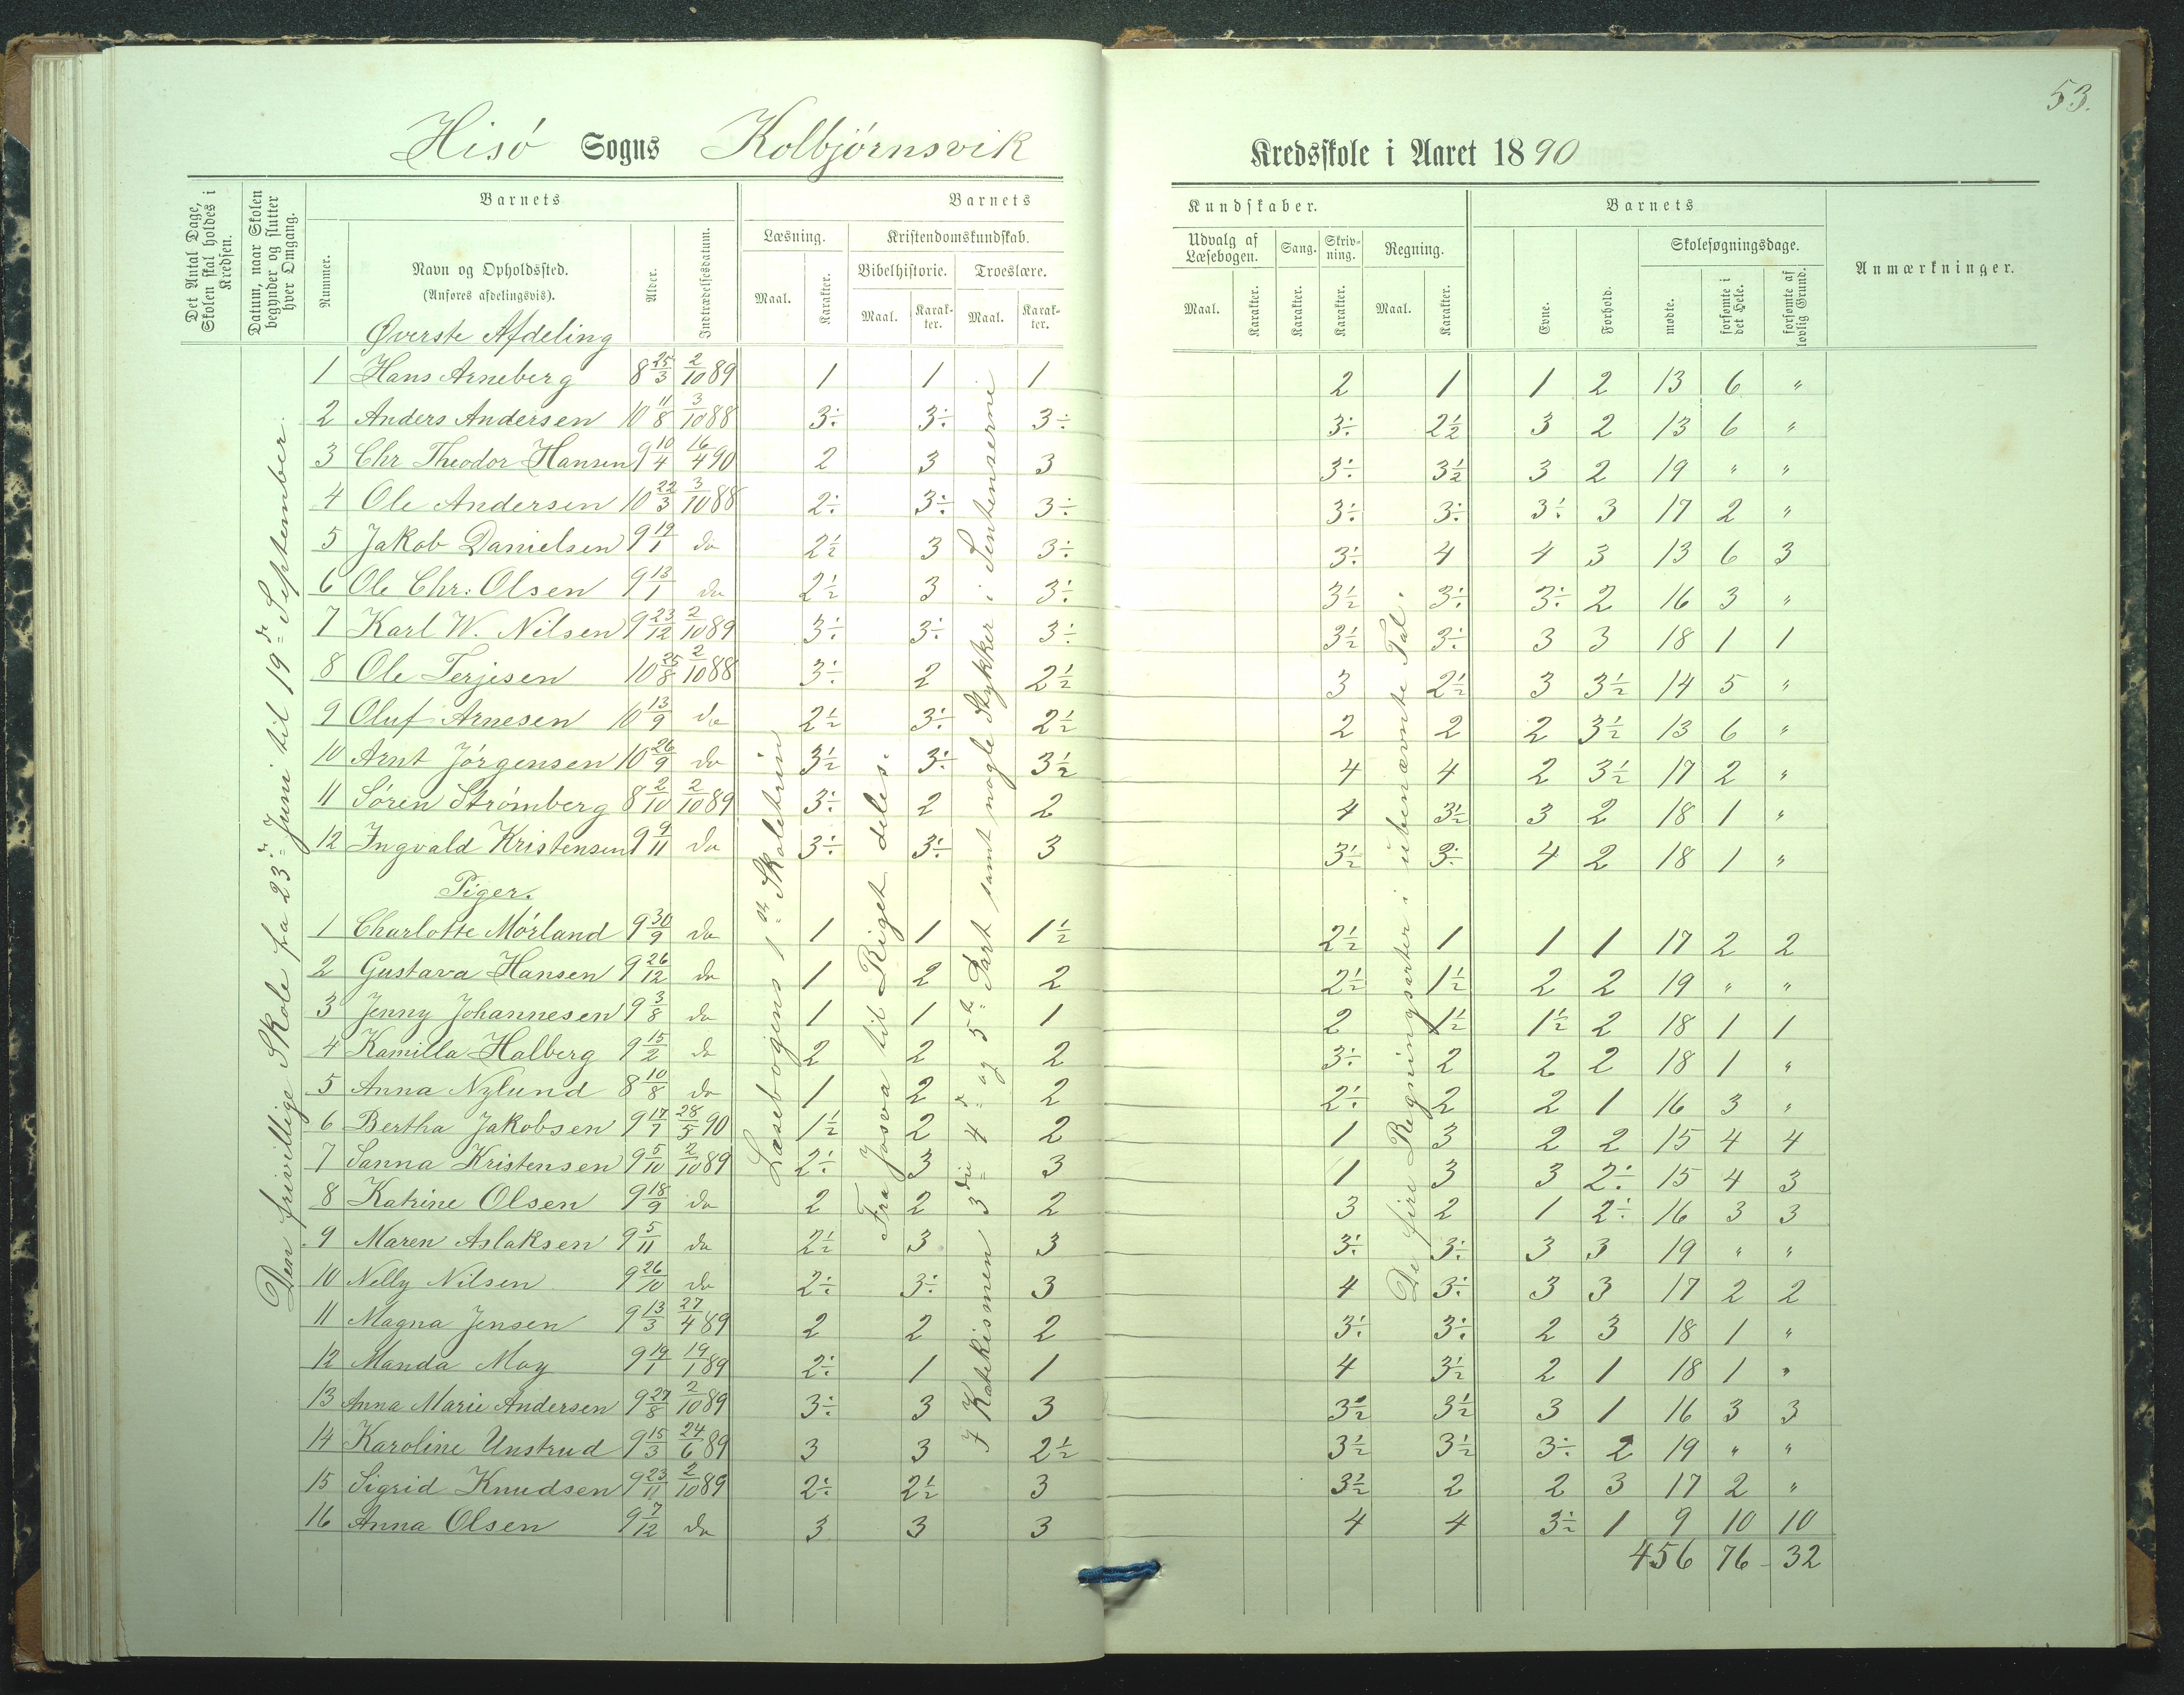 53.
Hisö Sogns Kolbjörnsvik Kredsskole i Aaret 1890
Det Antal Dage, Skolen skal holdes i Kredsen.
Datum, naar Skolen begynder og slutter hver Omgang.
Barnets
Nummer.
Navn og Opholdssted. (Anføres afdelingsvis).
Alder.
Indtrædelsesdatum.
Barnets Kundskaber.
Læsning. Maal. Karakter.
Kristendomskundskab.
Bibelhistorie. Maal. Karakter.
Troeslære. Maal. Karakter.
Udvalg af Læsebogen. Maal. Karakter.
Sang. Karakter.
Skrivning. Karakter.
Regning. Maal. Karakter.
Barnets
Evne. Forhold.
Skolesøgningsdage.
mødte. forsømte i det Hele. forsømte af lovlig Grund.
Anmærkninger.
Den frivillige Skole fra 23de Juni til 19de September.
Læsebogens 1ste Skoletrin
Fra Josva til Riget deles.
I Katekismen 3die 4de og 5te Part samt nogle Stykker i Sentenserne
De fire Regningsarter i ubenævnte Tal.
Øverste Afdeling
1 Hans Arneberg 8 25/3 2/10 89 1 1 1 2 1 1 2 13 6 "
2 Anders Andersen 10 11/8 3/10 88 3÷ 3÷ 3÷ 3÷ 2½ 3 2 13 6 "
3 Chr Theodor Hansen 9 10/4 16/4 90 2 3 3 3÷ 3½ 3 2 19 " "
4 Ole Andersen 10 22/3 3/10 88 2÷ 3÷ 3÷ 3÷ 3÷ 3÷ 3 17 2 "
5 Jakob Danielsen 9 19/1 do 2½ 3 3÷ 3÷ 4 4 3 13 6 3
6 Ole Chr: Olsen 9 13/1 do 2½ 3 3÷ 3½ 3÷ 3÷ 2 16 3 "
7 Karl W. Nilsen 9 23/12 2/10 89 3÷ 3÷ 3÷ 3½ 3÷ 3 3 18 1 1
8 Ole Terjesen 10 25/8 2/10 88 3÷ 2 2½ 3 2½ 3 3½ 14 5 "
9 Oluf Arnesen 10 13/9 do 2½ 3÷ 2½ 2 2 2 3½ 13 6 "
10 Arnt Jörgensen 10 26/9 do 3½ 3÷ 3½ 4 4 2 3½ 17 2 "
11 Sören Strömberg 8 2/10 2/10 89 3÷ 2 2 4 3½ 3 2 18 1 "
12 Ingvald Kristensen 9 9/11 do 3÷ 3÷ 3 3½ 3÷ 4 2 18 1 "
Piger.
1 Charlotte Mörland 9 30/9 do 1 1 1½ 2½ 1 1 1 17 2 2
2 Gustava Hansen 9 26/12 do 1 2 2 2½ 1½ 2 2 19 " "
3 Jenny Johannesen 9 3/8 do 1 1 1 2 1½ 1½ 2 18 1 1
4 Kamilla Halberg 9 15/2 do 2 2 2 3÷ 2 2 2 18 1 "
5 Anna Nylund 8 10/8 do 1 2 2 2÷ 2 2 1 16 3 "
6 Bertha Jakobsen 9 17/7 28/5 90 1½ 2 2 1 3 2 2 15 4 4
7 Sanna Kristensen 9 5/10 2/10 89 2÷ 3 3 1 3 3 2÷ 15 4 3
8 Katrine Olsen 9 18/9 do 2 2 2 3 2 1 2÷ 16 3 3
9 Maren Aslaksen 9 5/11 do 2½ 3 3 3÷ 3÷ 3 3 19 " "
10 Nelly Nilsen 9 26/10 do 2÷ 3÷ 3 4 3÷ 3 3 17 2 2
11 Magna Jensen 9 13/3 27/4 89 2 2 2 3÷ 3÷ 2 3 18 1 "
12 Manda Moy 9 19/1 19/1 89 2÷ 1 1 4 3½ 2 1 18 1 "
13 Anna Marie Andersen 9 27/8 2/10 89 3÷ 3 3 3½ 3½ 3 1 16 3 3
14 Karoline Unstrud 9 15/3 24/6 89 3 3 2½ 3½ 3½ 3÷ 2 19 " "
15 Sigrid Knudsen 9 23/11 2/10 89 2÷ 2½ 3 3½ 2 2 3 17 2 "
16 Anna Olsen 9 7/12 do 3 3 3 4 4 3½ 1 9 10 10
456 76 - 32